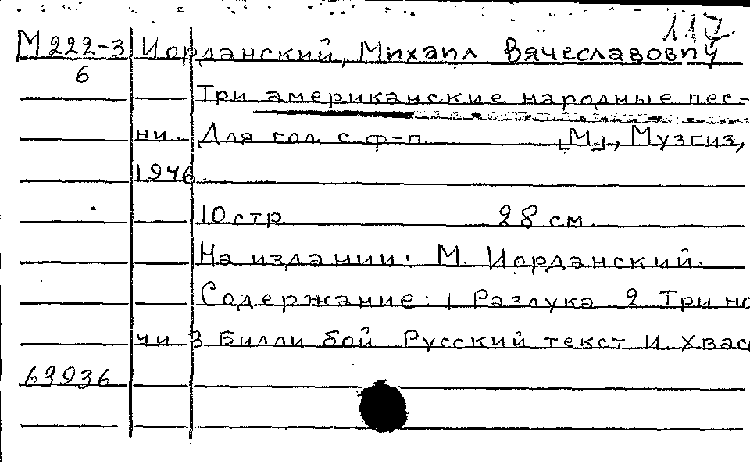 117
М 222-3 Иорданский, Михаил Вячеславович
6
Три американские народные пес-
ни. Для гол. с ф-п. [М], Музгиз,
1946
10 стр 28 см.
На издании: М. Иорданский.
Содержание: 1 Разлука 2 Три но
чи 3 Билли бой Русский текст И. Хвас
69936